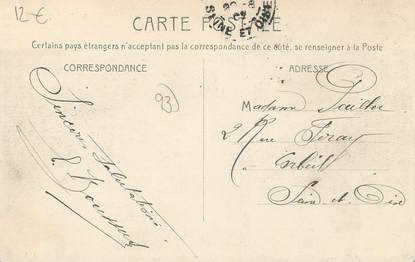 12-€
CARTE POSTALE
SEINE ET OISE
Certains pays étrangers n'acceptant pas la correspondance de ce côté, se renseigner à la Poste
CORRESPONDANCE
93
Sincères salutations
ADRESSE
Madame
2 Rue Feray
à Corbeil
Seine-et-Oise